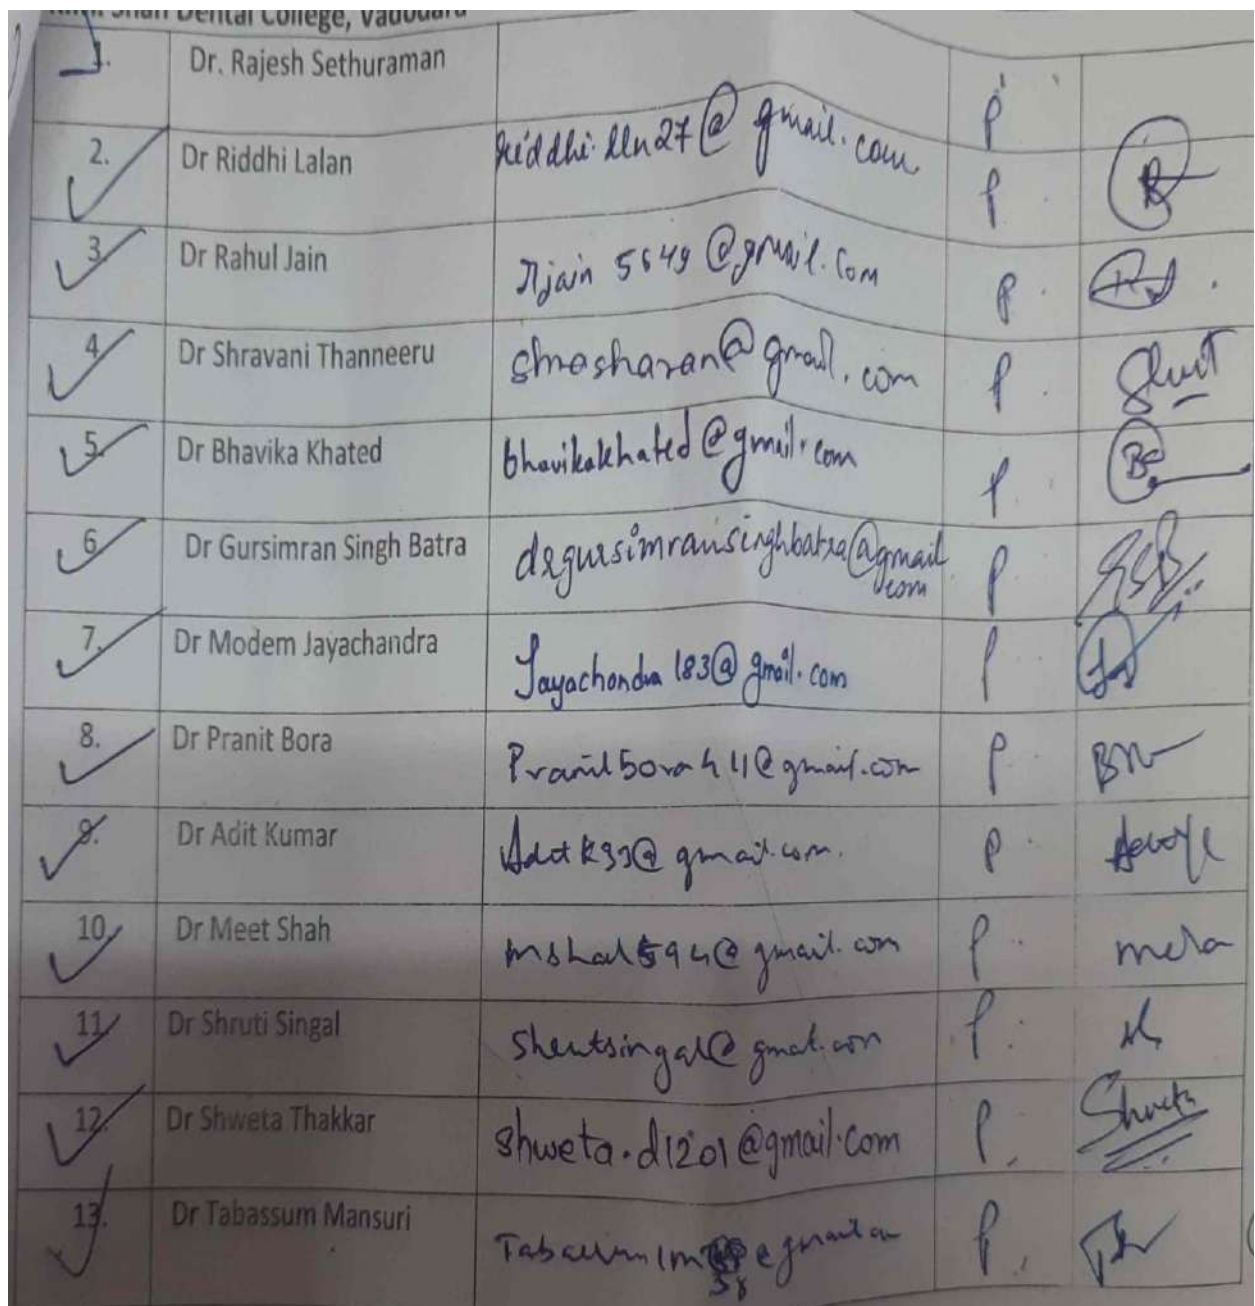 Shah Dental College, Vadodara
1. Dr. Rajesh Sethuraman P
2. Dr Riddhi Lalan riddhi.lln27@gmail.com P
3. Dr Rahul Jain rjain5649@gmail.com P
4. Dr Shravani Thanneeru @gmail.com P
5. Dr Bhavika Khated bhavikakhated@gmail.com P
6. Dr Gursimran Singh Batra drgursimransinghbatra@gmail.com P GSB
7. Dr Modem Jayachandra Jayachandra183@gmail.com P
8. Dr Pranit Bora @gmail.com P
9. Dr Adit Kumar @gmail.com. P
10. Dr Meet Shah @gmail.com P
11. Dr Shruti Singal P
12. Dr Shweta Thakkar shweta.d1201@gmail.com P Shweta
13. Dr Tabassum Mansuri P